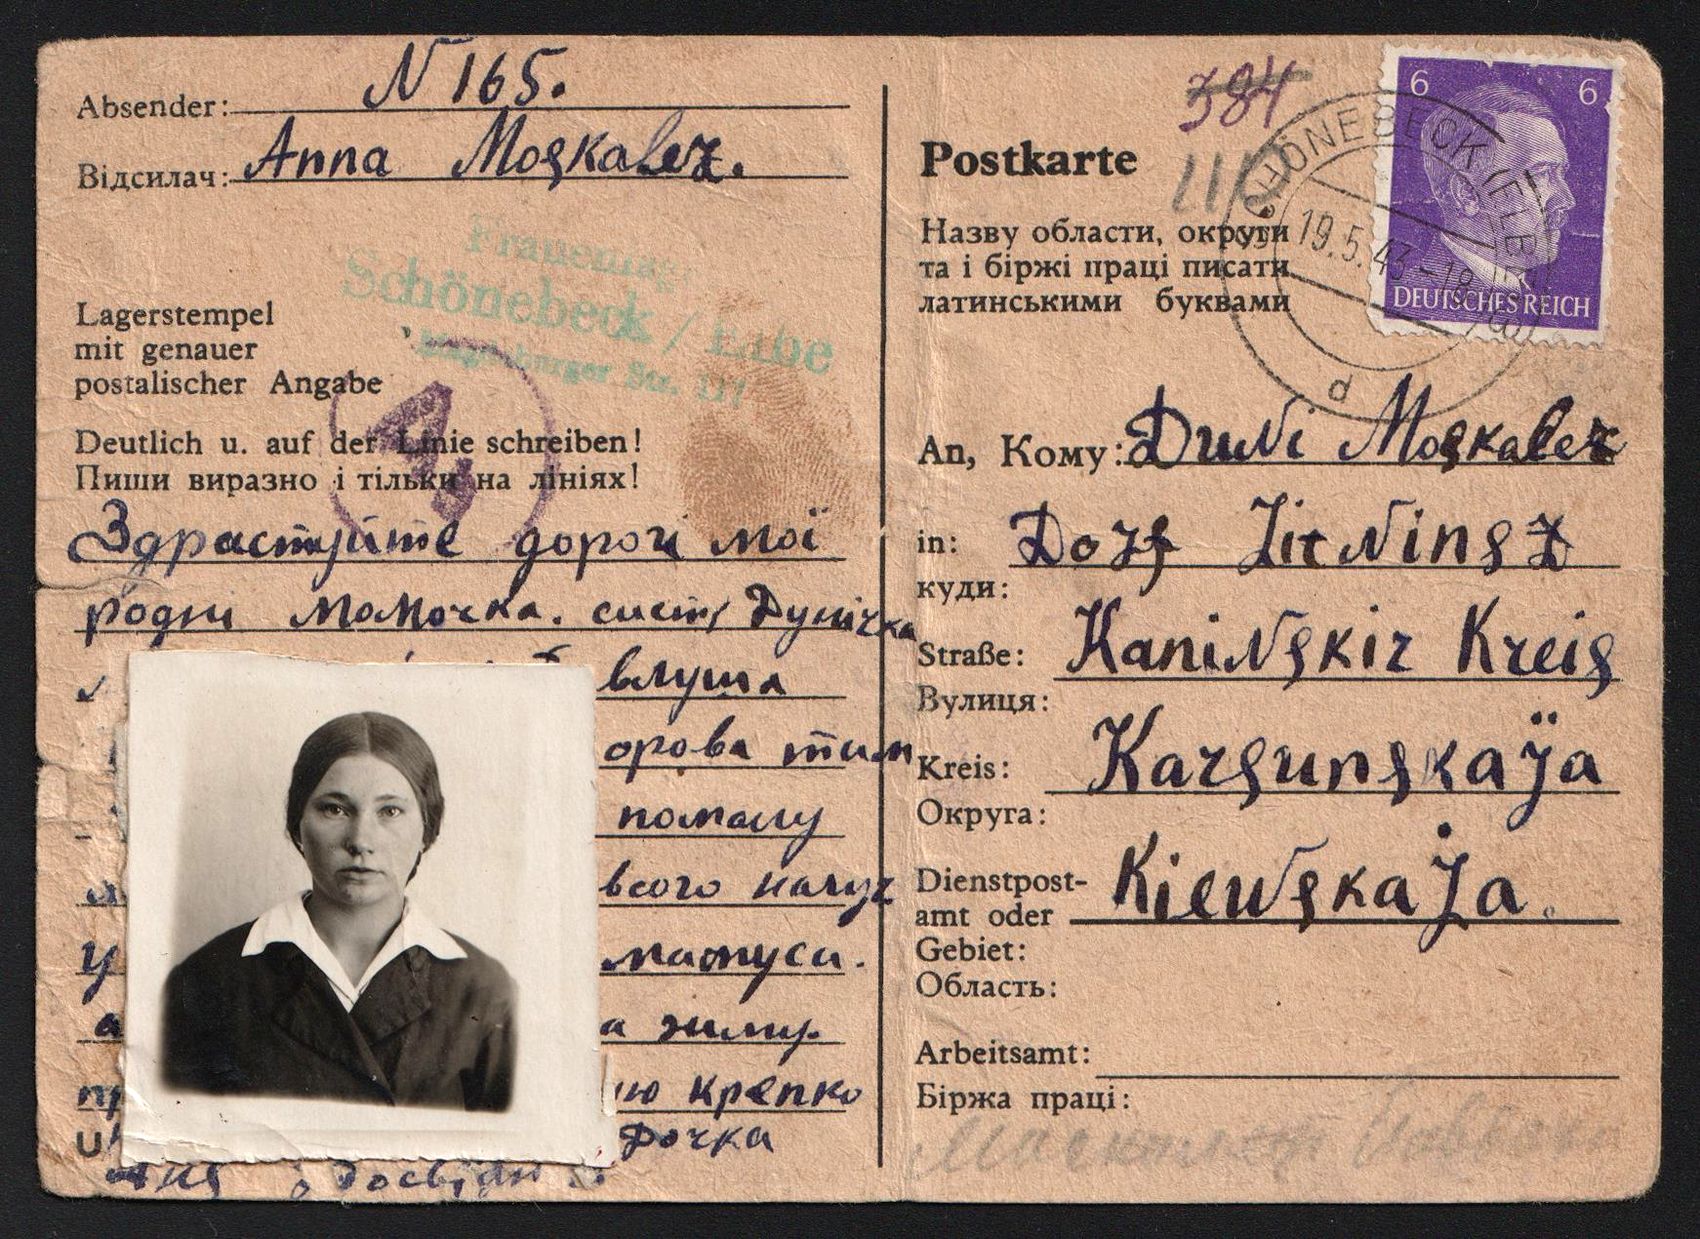 N 165.
Absender:
Anna Moskalez.
Відсилач:
Frauenlag
Schönebeck / Elbe
Magdeburger Str. 117
Lagerstempel
mit genauer
postalischer Angabe
Deutlich u. auf der Linie schreiben!
Пиши виразно і тільки на лініях!
Здрастуйте дорогі мої
родні мамочка. систр Дунічка
влуша
орова тим
помалу
всого
у
а зиму.
пр ю крепко
дочка
Аня досвідан
384
Postkarte
Назву области, округи
та і біржі праці писати
латинськими буквами
6 6
DEUTSCHES REICH
SCHÖNEBECK (ELBE)
19.5.43-18
d
An, Кому: Duni Moskalez
in: Dorf Zitninsz
куди:
Straße: Kaninskir Kreis
Вулиця:
Kreis: Karsunskaja
Округа:
Dienstpost-
amt oder Kiewskaja.
Gebiet:
Область:
Arbeitsamt:
Біржа праці: